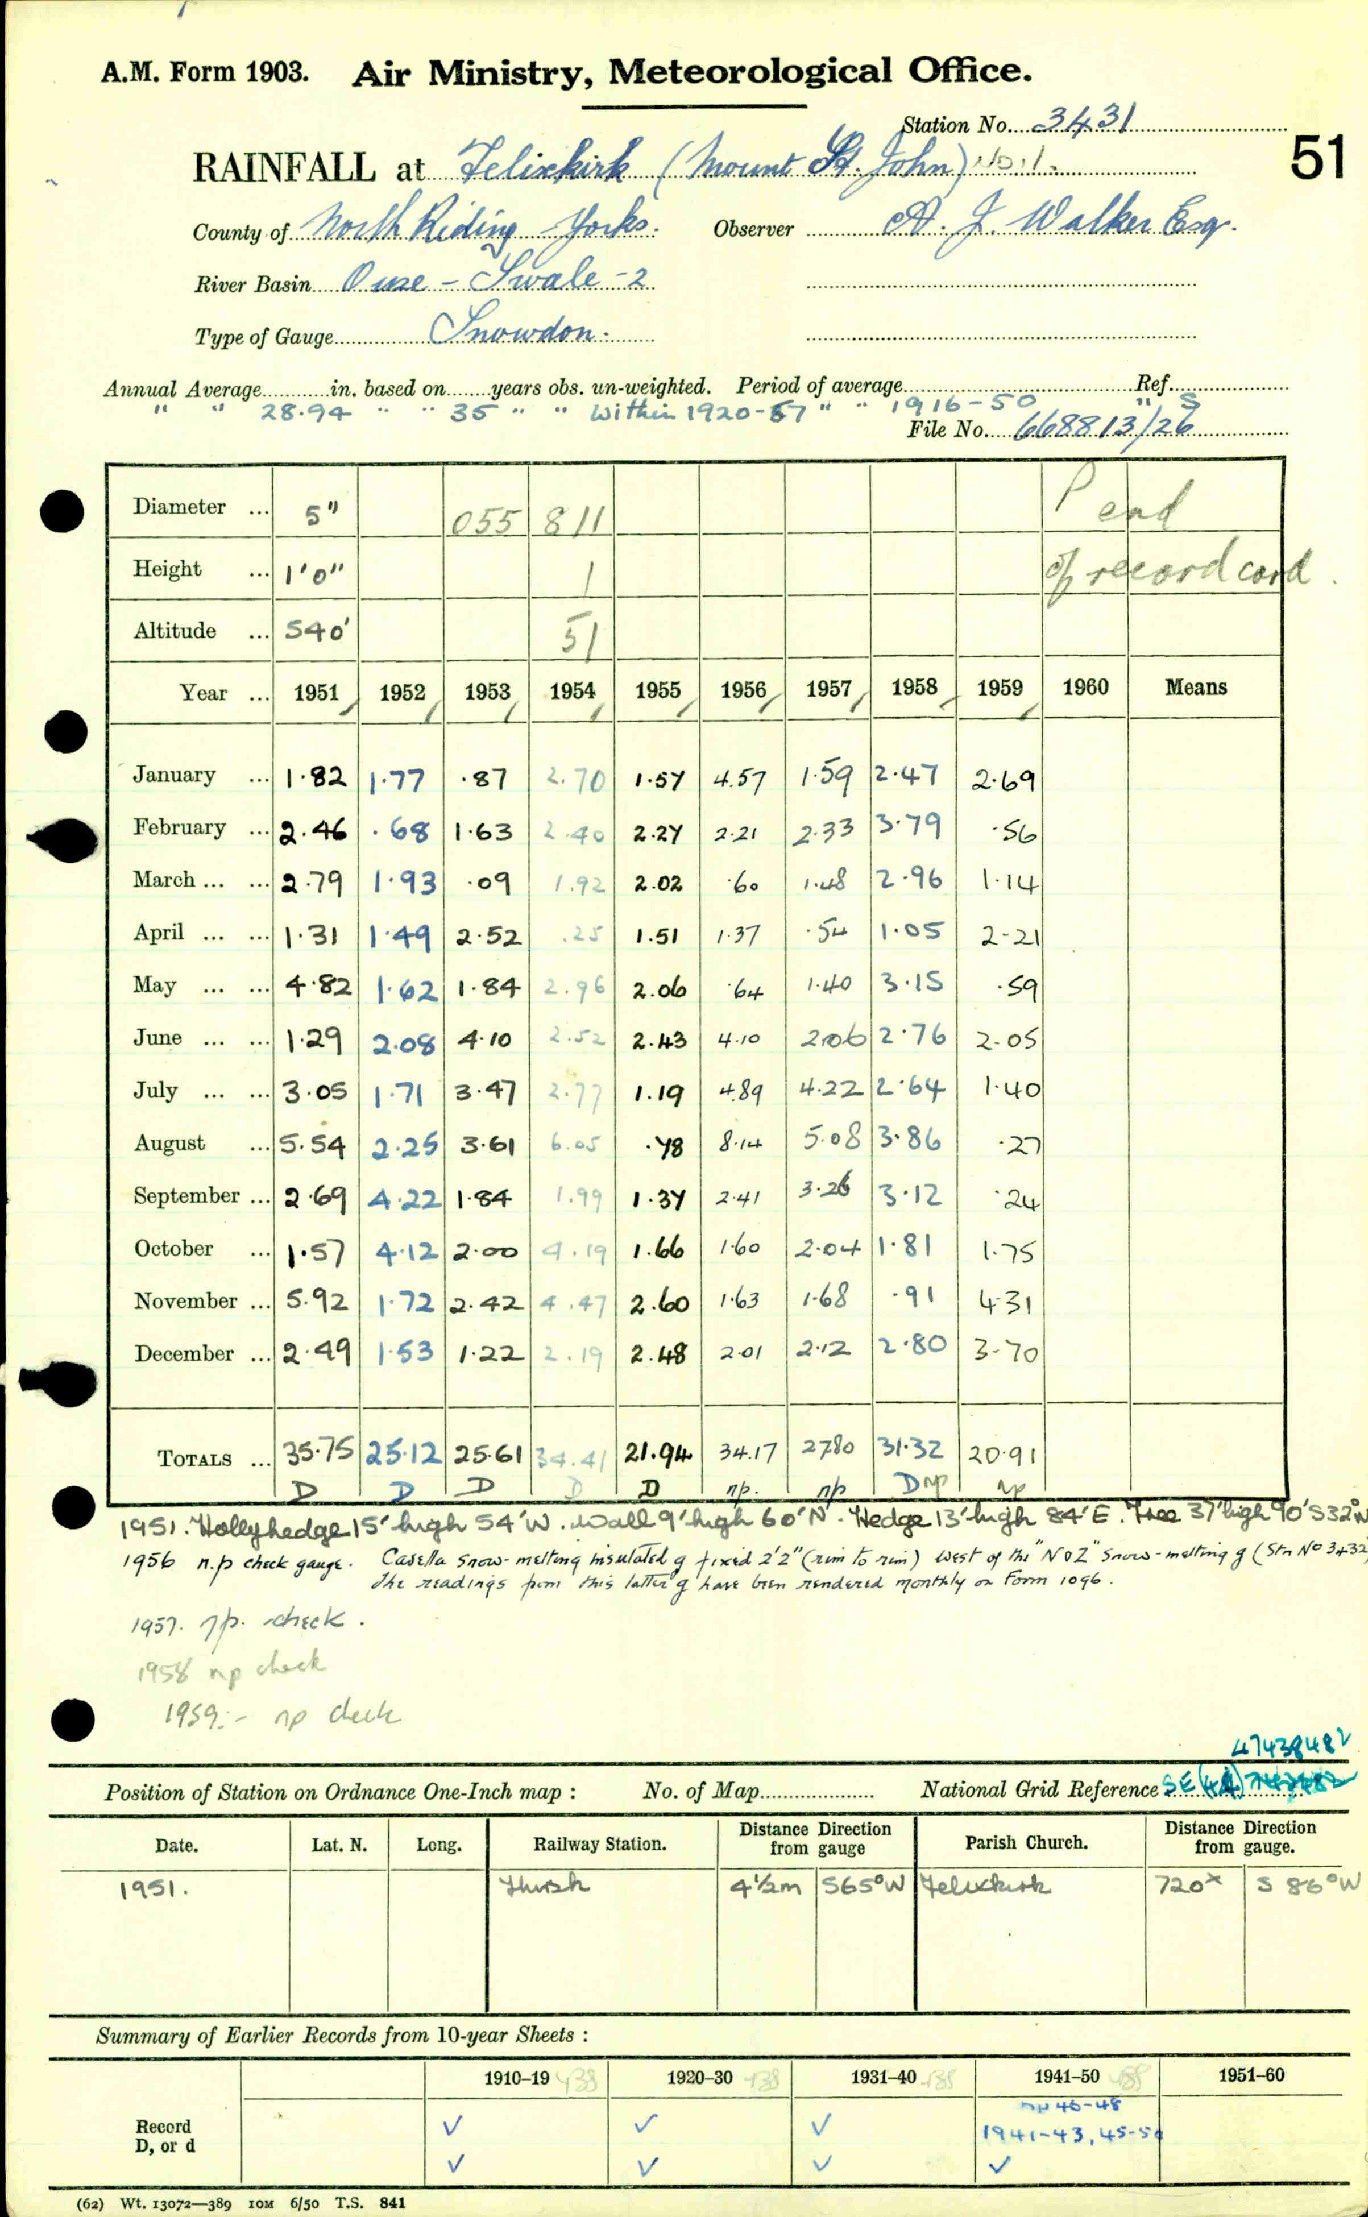 A.M. Form 1903. Air Ministry, Meteorological Office.
Station No. 3431
51
RAINFALL at Felixkirk (Mount St. John) No.1.
County of North Riding Yorks. Observer A. J. Walker Esq.
River Basin Ouse - Swale - 2
Type of Gauge Snowdon.
Annual Average in. based on years obs. un-weighted. Period of average Ref.
" " 28.94 " " 35 " " Within 1920-57 " " 1916-50 " S
File No. 668813/26
Diameter ... 5" 055 811 P end
Height ... 1'0" 1 of record card.
Altitude ... 540' 51
Year ... 1951 1952 1953 1954 1955 1956 1957 1958 1959 1960 Means
January ... 1.82 1.77 .87 2.70 1.57 4.57 1.59 2.47 2.69
February ... 2.46 .68 1.63 2.40 2.27 2.21 2.33 3.79 .56
March ... ... 2.79 1.93 .09 1.92 2.02 .60 1.48 2.96 1.14
April ... ... 1.31 1.49 2.52 .25 1.51 1.37 .54 1.05 2.21
May ... ... 4.82 1.62 1.84 2.96 2.06 .64 1.40 3.15 .59
June ... ... 1.29 2.08 4.10 2.52 2.43 4.10 2.06 2.76 2.05
July ... ... 3.05 1.71 3.47 2.77 1.19 4.89 4.22 2.64 1.40
August ... 5.54 2.25 3.61 6.05 .78 8.14 5.08 3.86 .27
September ... 2.69 4.22 1.84 1.99 1.37 2.41 3.26 3.12 .24
October ... 1.57 4.12 2.00 4.19 1.66 1.60 2.04 1.81 1.75
November ... 5.92 1.72 2.42 4.47 2.60 1.63 1.68 .91 4.31
December ... 2.49 1.53 1.22 2.19 2.48 2.01 2.12 2.80 3.70
TOTALS ... 35.75 25.12 25.61 34.41 21.94 34.17 27.80 31.32 20.91
D D D D D np. np D np np
1951. Holly hedge 15' high 54' W. Wall 9' high 60' N. Hedge 13' high 84' E. Tree 37' high 90' S32°W
1956 n.p check gauge. Casella snow-melting insulated g fixed 2'2" (rim to rim) west of the "NOZ" snow-melting g (Stn No 3432
The readings from this latter g have been rendered monthly on Form 1096.
1957. np. check.
1958 np check
1959:- np check
47438482
Position of Station on Ordnance One-Inch map : No. of Map National Grid Reference SE (44) 743482
Date. Lat. N. Long. Railway Station. Distance from gauge Direction Parish Church. Distance from gauge. Direction
1951. Thirsk 4½m S65°W Felixkirk 720x S 86°W
Summary of Earlier Records from 10-year Sheets :
1910–19 438 1920–30 438 1931–40 438 1941–50 438 1951–60
np 46-48
Record D, or d ✓ ✓ ✓ 1941-43, 45-50
✓ ✓ ✓ ✓
(62) Wt. 13072—389 10M 6/50 T.S. 841